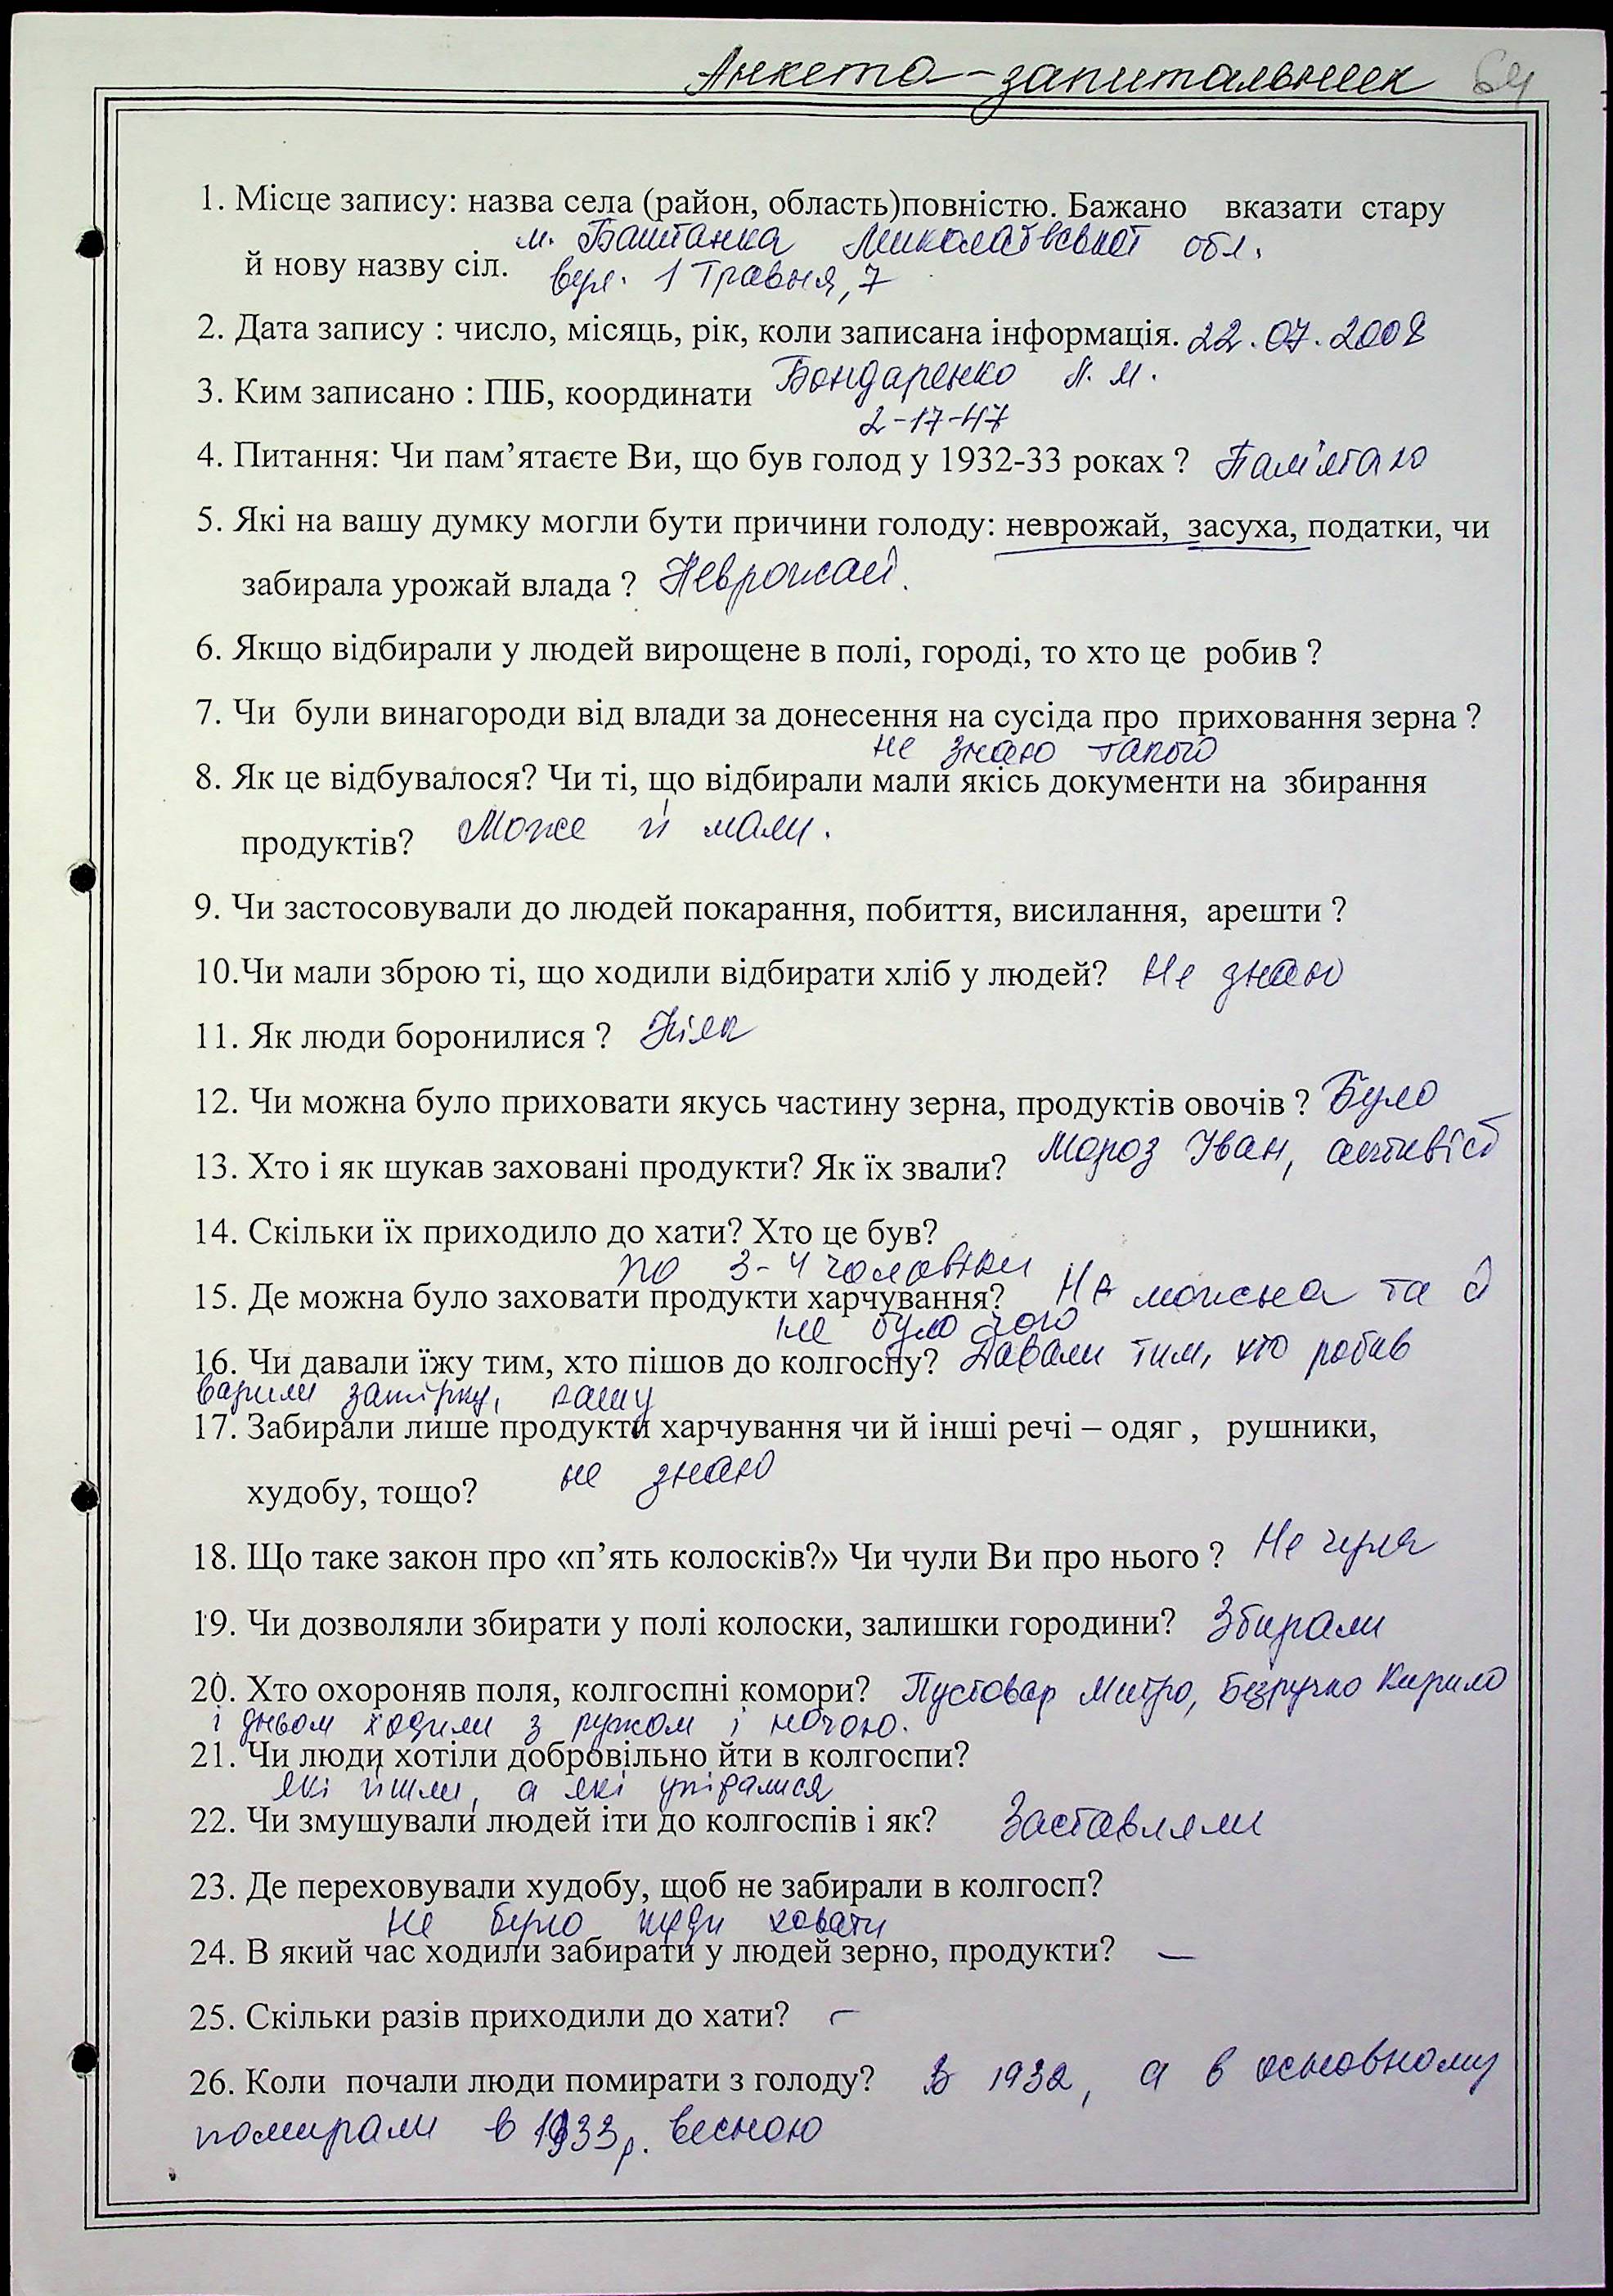 Анкета-запитальник 64
1. Місце запису: назва села (район, область)повністю. Бажано вказати стару
м. Баштанка Миколаївської обл.
й нову назву сіл. вул. 1 Травня, 7
2. Дата запису : число, місяць, рік, коли записана інформація. 22.07.2008
3. Ким записано : ПІБ, координати Бондаренко Л. М.
2-17-47
4. Питання: Чи пам’ятаєте Ви, що був голод у 1932-33 роках ? Пам'ятаю
5. Які на вашу думку могли бути причини голоду: неврожай, засуха, податки, чи
забирала урожай влада ? Неврожай.
6. Якщо відбирали у людей вирощене в полі, городі, то хто це робив ?
7. Чи були винагороди від влади за донесення на сусіда про приховання зерна ?
не знаю такого
8. Як це відбувалося? Чи ті, що відбирали мали якісь документи на збирання
продуктів? Може й мали.
9. Чи застосовували до людей покарання, побиття, висилання, арешти ?
10.Чи мали зброю ті, що ходили відбирати хліб у людей? Не знаю
11. Як люди боронилися ? Ніяк
12. Чи можна було приховати якусь частину зерна, продуктів овочів ? Було
13. Хто і як шукав заховані продукти? Як їх звали? Мороз Іван, активіст
14. Скільки їх приходило до хати? Хто це був?
по 3-4 чоловіки
15. Де можна було заховати продукти харчування? Не можна та й
не було чого
16. Чи давали їжу тим, хто пішов до колгоспу? Давали тим, хто робив
варили затірку, кашу
17. Забирали лише продукти харчування чи й інші речі – одяг , рушники,
худобу, тощо? не знаю
18. Що таке закон про «п’ять колосків?» Чи чули Ви про нього ? Не чула
19. Чи дозволяли збирати у полі колоски, залишки городини? Збирали
20. Хто охороняв поля, колгоспні комори? Пустовар Митро, Безручко Кирило
і дньом ходили з ружом і ночою.
21. Чи люди хотіли добровільно йти в колгоспи?
які йшли, а які упіралися
22. Чи змушували людей іти до колгоспів і як? Заставляли
23. Де переховували худобу, щоб не забирали в колгосп?
Не було куди ховати
24. В який час ходили забирати у людей зерно, продукти? —
25. Скільки разів приходили до хати? –
26. Коли почали люди помирати з голоду? В 1932, а в основному
помирали в 1933 р. весною